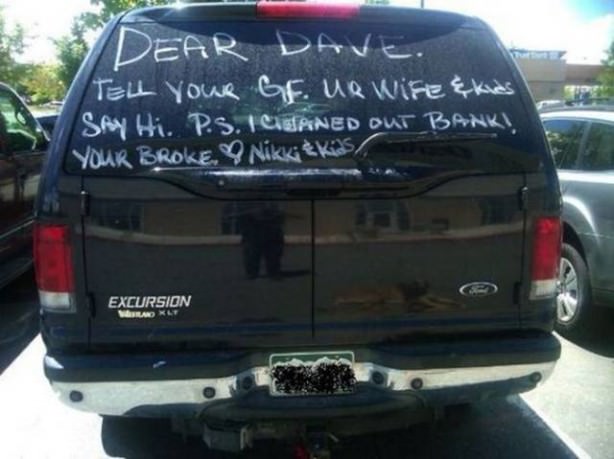 DEAR DAVE.
TELL YOUR GF. UR WIFE & Kids
SAY Hi. P.S. I CLEANED OUT BANK!
YOUR BROKE. ♡ Nikki & Kids
EXCURSION
XLT
Ford